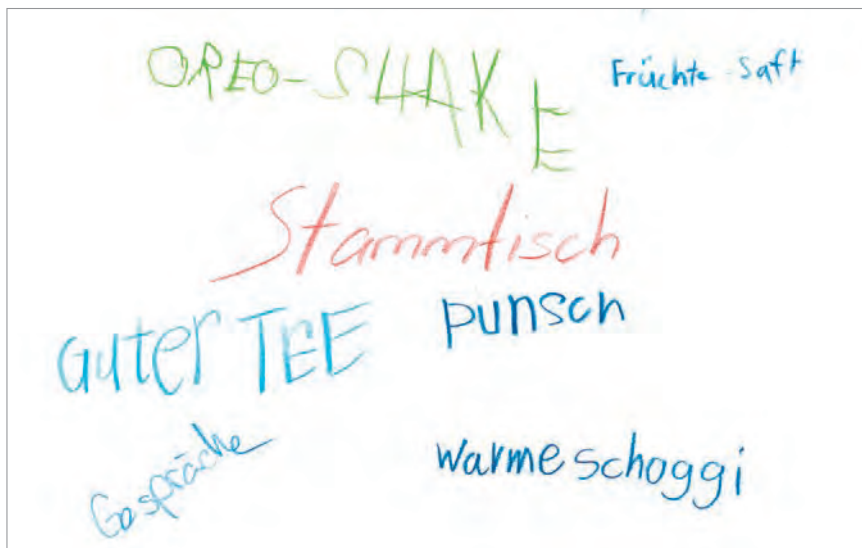 OREO-SHAKE
Früchte-Saft
Stammtisch
Guter TEE
punsch
Gespräche
warme schoggi